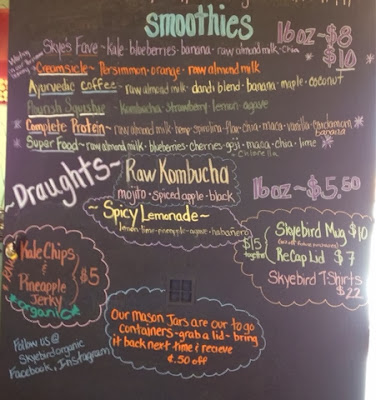 smoothies
16 oz ~ $8
* $10 *
Skye's Fave ~ Kale · blueberries · banana · raw almond milk · chia
Creamsicle ~ Persimmon · orange · raw almond milk
Ayurvedic Coffee ~ raw almond milk · dandi blend · banana · maple · coconut
Squashie ~ Kombucha · strawberry · lemon · agave
* Complete Protein ~ raw almond milk · hemp · spirulina · flax · chia · maca · vanilla · cardamom *
banana
* Super Food ~ raw almond milk · blueberries · cherries · goji · maca · chia · lime *
~Draughts~
Raw Kombucha
mojito · spiced apple · black
16 oz ~ $5.50
~ Spicy Lemonade ~
lemon · lime · pineapple · agave · habañero
Skyebird Mug $10
$15
together
ReCap Lid $7
Skyebird T-Shirts
$22
*RAW*
Kale Chips
&
Pineapple
Jerky
$5
*organic*
Our mason jars are our to go
containers ~ grab a lid ~ bring
it back next time & recieve
$.50 off
Follow us @
Skyebirdorganic
Facebook, Instagram